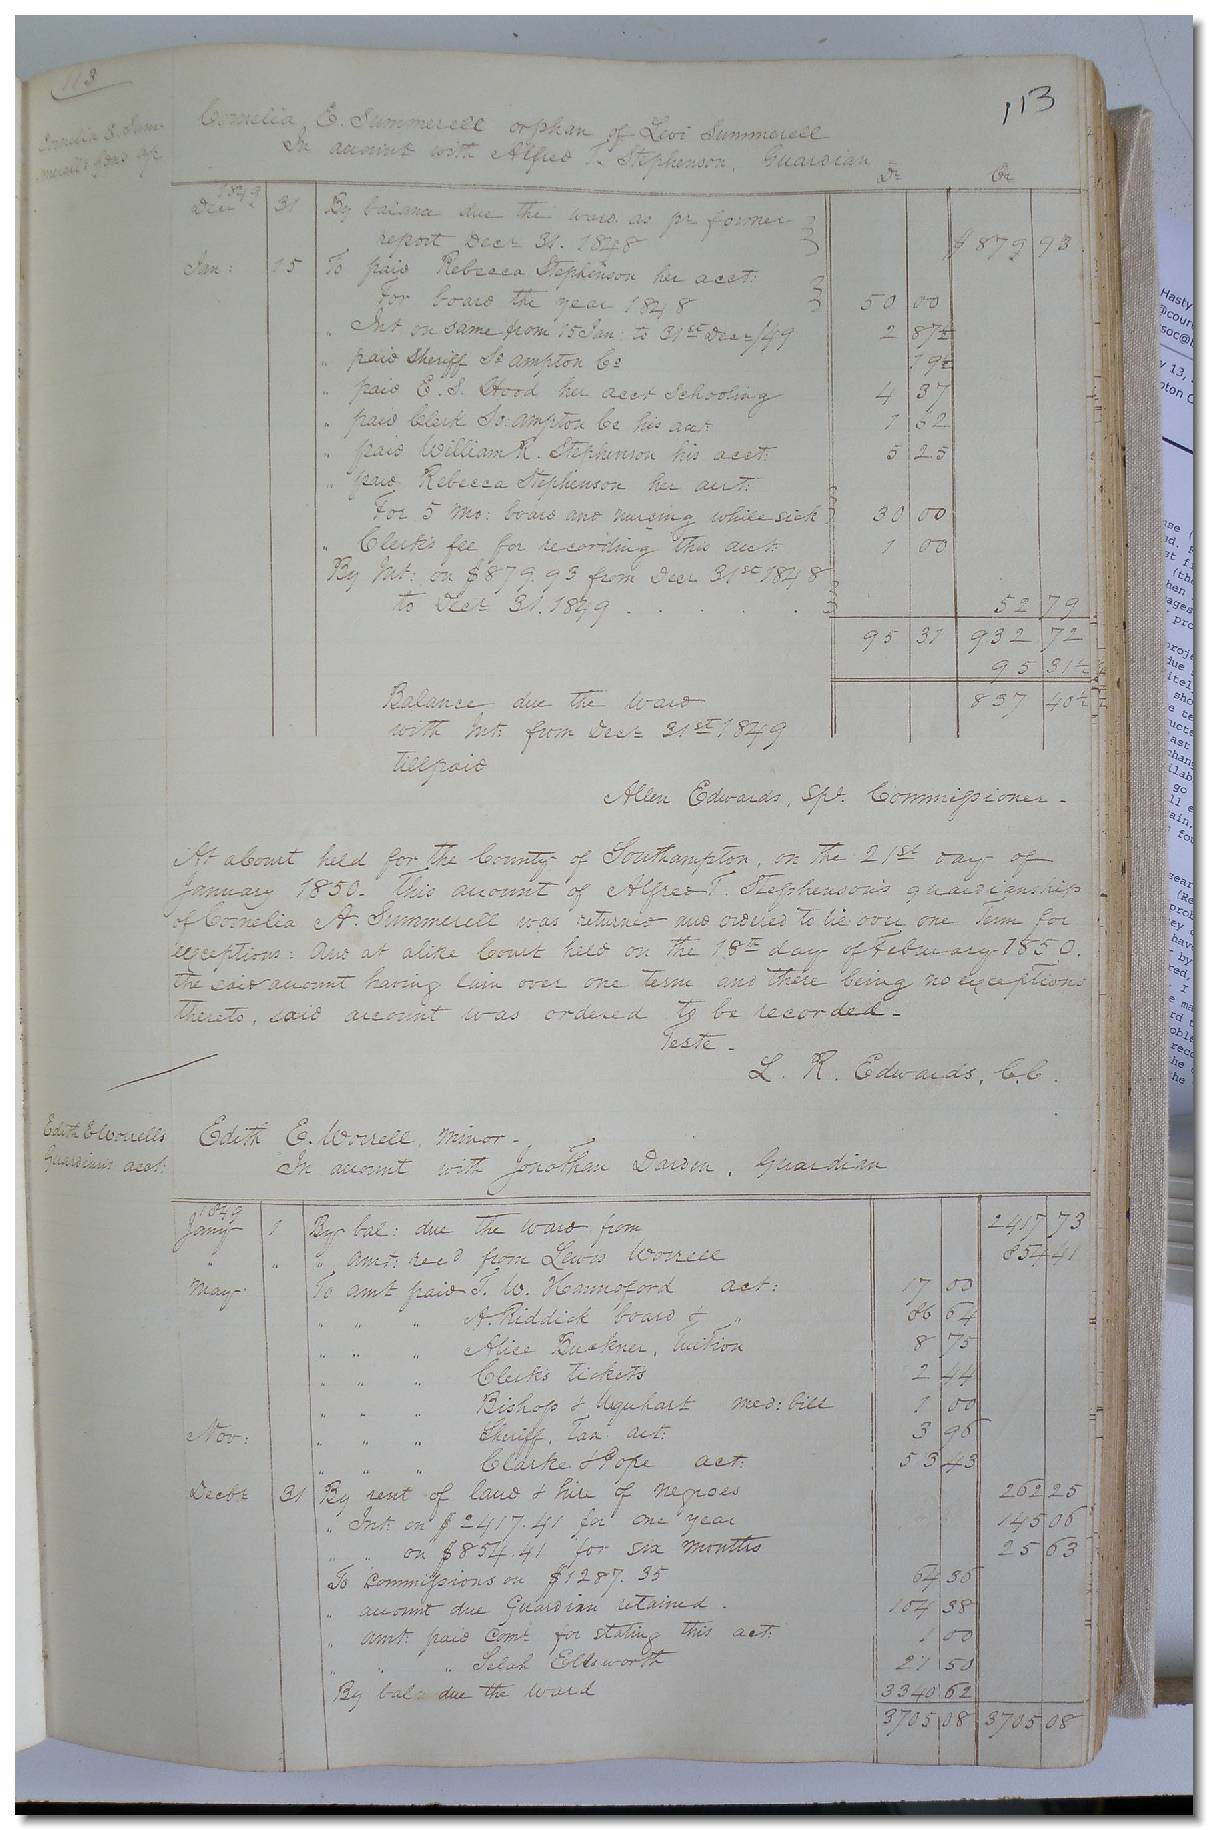 113
113
Cornelia E. Summerell orphan of Levi Summerell
In account with Alfred T. Stephenson, Guardian
Dr Cr
1849
Dec 31 By balance due the ward as pr former
report Decr 31. 1848 $879 93
Jan: 15 To paid Rebecca Stephenson her acct:
For board the year 1848 50 00
" Int on same from 15 Jan: to 31st Decr/49 2 87½
" paid Sheriff So ampton Co 19½
" paid E. S. Hood her acct Schooling 4 37
" paid Clerk So: ampton Co his act: 1 62
" paid William R. Stephenson his acct: 5 25
" paid Rebecca Stephenson her acct:
For 5 mo: board and nursing while sick 30 00
" Clerk's fee for recording this act: 1 00
By Int: on $879.93 from Decr 31st 1848
to Decr 31. 1849 52 79
95 31 932 72
95 31½
Balance due the ward 837 40½
with Int: from Decr 31st 1849
till paid
Allen Edwards, Spl. Commissioner -
At a Court held for the County of Southampton, on the 21st day of
January 1850. This account of Alfred T. Stephenson's guardianship
of Cornelia A. Summerell was returned and ordered to lie over one Term for
exceptions: And at alike Court held on the 18th day of February 1850.
the said account having lain over one term and there being no exceptions
thereto, said account was ordered to be recorded -
Teste -
L. R. Edwards, C.C.
Edith E Worrells
Guardian's acct:
Edith E. Worrell, minor -
In account with Jonathan Darden, Guardian
1849
Jany 1 By bal: due the ward from 2417 73
" " " amt: recd from Lewis Worrell 854 41
May To amt paid T. W. Hanneford act: 17 00
" " " A. Riddick board & " 86 64
" " " Alice Buckner, Tuition 8 75
" " " Clerk's tickets 2 44
" " " Bishop & Urquhart med: bill 1 00
Nov: " " " Sheriff, Tax act: 3 96
" " " Clarke & Pope act: 53 43
Decbr 31 By rent of land & hire of negroes 262 25
" Int: on $2417.41 for one year 145 06
" " on $854.41 for six months 25 63
To Commissions on $1287.35 64 36
" account due Guardian retained. 104 38
" amt: paid Comr for stating this act: 1 00
" " " Selah Ellsworth 21 50
By bal: due the ward 3340 62
3705 08 3705 08